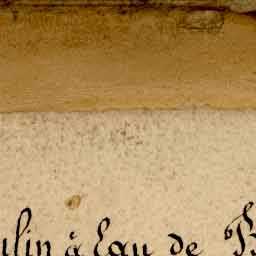 ulin à Eau de B